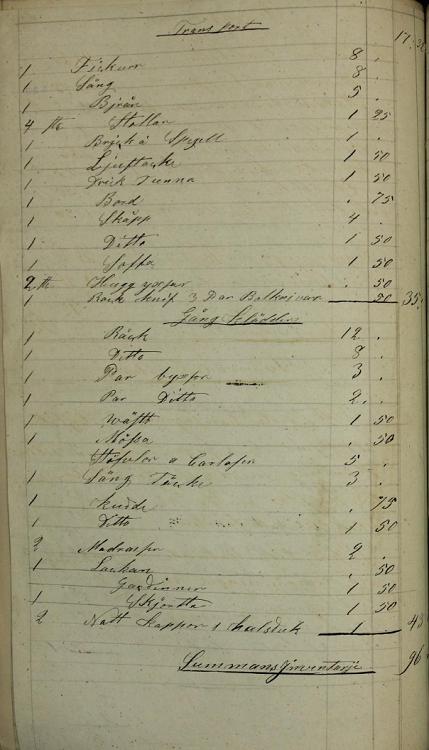 Transport 17
1 Fickurr 8 .
1 Säng 8 .
1 Bjrån 5 .
4 st Stollar 1 25
1 Brick a Spegell 1 .
1 Ljustacke 1 50
1 Drick Tunna 1 50
1 Bord . 75
1 Skåpp 4 .
1 Ditto 1 50
1 Soffa 1 50
2 st Hugg yxor . 50
1 Rack knif 3 Par Balknivar 50 35
Gång Kläder
1 Råck 12 .
1 Ditto 8 .
1 Par byxor 3 .
1 Par Ditto 2 .
1 wäst 1 50
1 Mössa . 50
Stöfvlor 5 .
1 Säng Täcke 3 .
1 kudde . 75
1 Ditto 1 50
2 Madrasser 2 .
1 Lackan . 50
Gardinner 1 50
1 Skjortta 1 50
2 Natt kappor 1 halsduk 1 . 43
Summans Inventarje 96